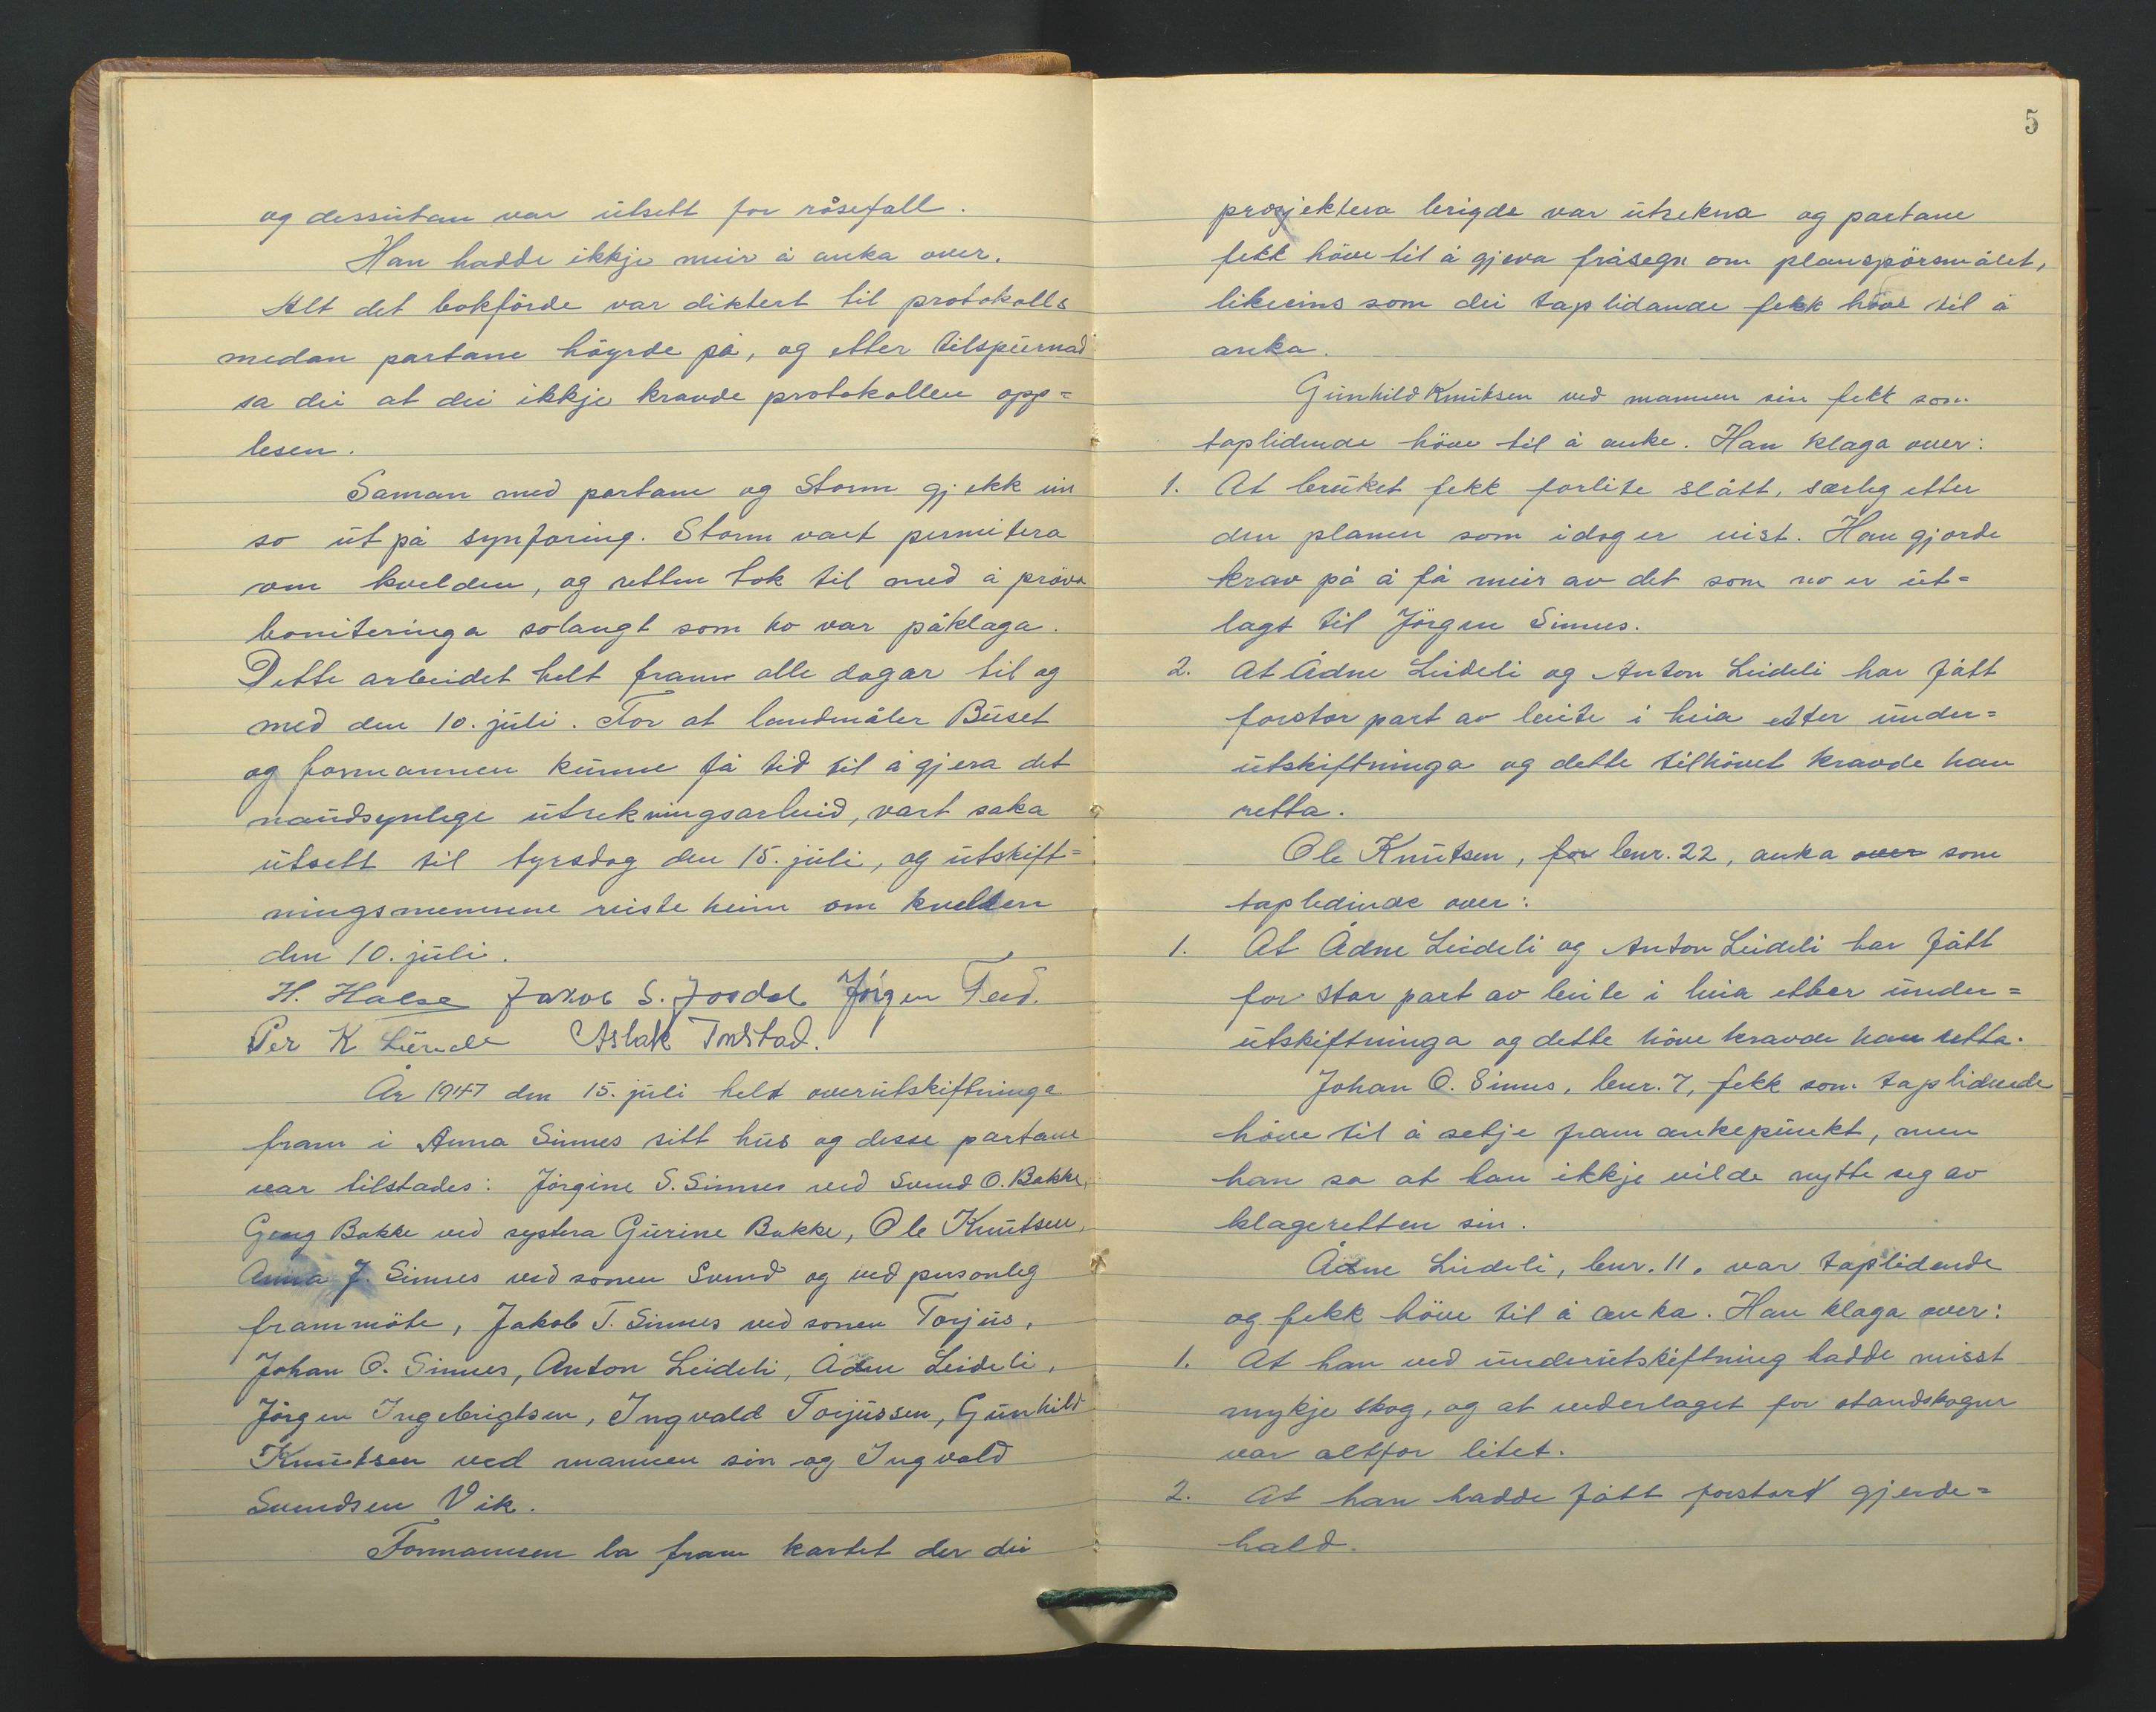 og dessutan var utsett for råsefall.
Han hadde ikkje meir å anka over.
Alt det bokførde var diktert til protokolls
medan partane høyrde på, og etter tilspurnad
sa dei at dei ikkje kravde protokollen opp=
lesen.
Saman med partane og Storm gjekk ein
so ut på synfaring. Storm vart permitera
om kvelden, og retten tok til med å prøva
boniteringa solangt som ho var påklaga.
Dette arbeidet helt fram alle dagar til og
med den 10. juli. For at landmåler Buset
og formannen kunne få tid til å gjera det
naudsynlege utrekningsarbeid, vart saka
utsett til tyrsdag den 15. juli, og utskift=
ningsmennene reiste heim om kvelden
den 10. juli.
H. Halse Jakob S. Josdal Jörgen Feed.
Per K Lunde Aslak Tonstad.
År 1947 den 15. juli helt overutskiftninga
fram i Anna Sinnes sitt hus og desse partane
var tilstades: Jörgine S. Sinnes ved Svend O. Bakke,
Georg Bakke ved systera Gurine Bakke, Ole Knutsen,
Anna J. Sinnes ved sonen Svend og ved personleg
frammöte, Jakob T. Sinnes ved sonen Torjus,
Johan O. Sinnes, Anton Leideli, Ådne Leideli,
Jörgen Ingebrigtsen, Ingvald Torjussen, Gunhild
Knutsen ved mannen sin og Ingvald
Svendsen Vik.
Formannen la fram kartet der dei
5
prosjektera lerigde var utrekna og partane
fekk höve til å gjeva fråsegn om planspörsmålet,
likeeins som dei taplidande fekk höve til å
anka.
Gunhild Knutsen ved mannen sin fekk som
taplidende höve til å anke. Han klaga over:
1. At bruket fekk forlite slått, særleg etter
den planen som idag er vist. Han gjorde
krav på å få meir av det som no er ut=
lagt til Jörgen Sinnes.
2. At Ådne Leideli og Anton Leideli har fått
forstor part av beite i heia etter under=
utskiftninga og dette tilhövet kravde han
retta.
Ole Knutsen, for bnr. 22, anka over som
taplidende over:
1. At Ådne Leideli og Anton Leideli har fått
for stor part av beite i heia etter under=
utskiftninga og dette höve kravde han retta.
Johan O. Sinnes, bnr. 7, fekk som taplidende
höve til å setje fram ankepunkt, men
han sa at han ikkje vilde nytte seg av
klageretten sin.
Ådne Leideli, bnr. 11, var taplidende
og fekk höve til å anka. Han klaga over:
1. At han ved underutskiftning hadde misst
mykje skog, og at vederlaget for standskogen
var altfor litet.
2. At han hadde fått forstort gjerde=
hald.